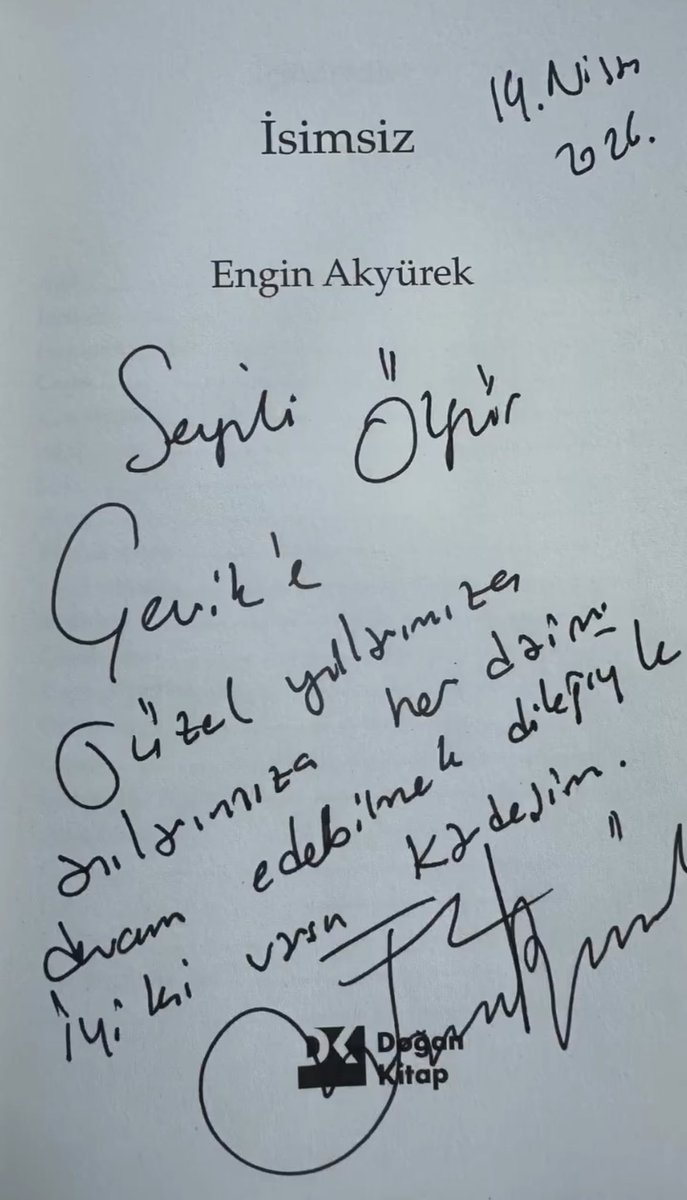 19.Nisan
2026.
İsimsiz
Engin Akyürek
Sevgili Özgür
Çevik'e
Güzel yıllarımıza
anılarımıza her daim
devam edebilmek dileğiyle
İyi ki varsın kardeşim.
Doğan
Kitap